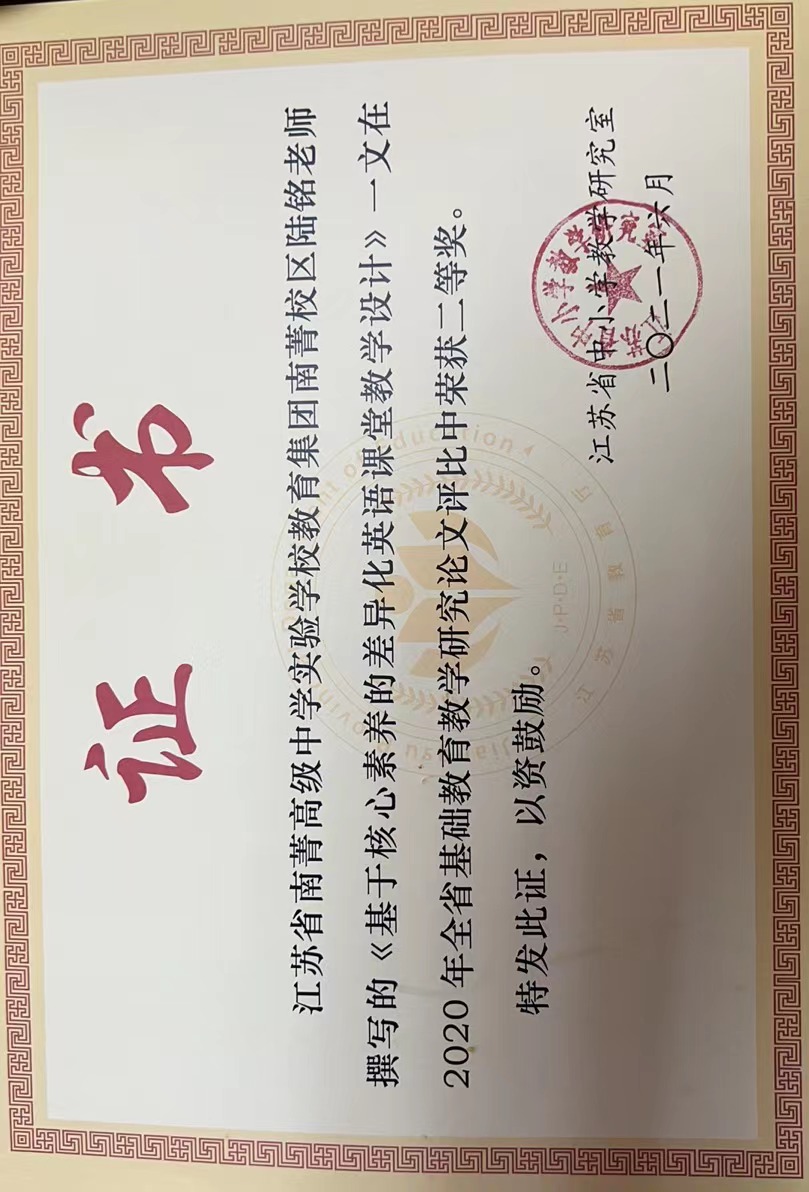 证书
江苏省南菁高级中学实验学校教育集团南菁校区陆铭老师
撰写的《基于核心素养的差异化英语课堂教学设计》一文在
2020年全省基础教育教学研究论文评比中荣获二等奖。
特发此证，以资鼓励。
J·P·D·E
江苏省教育厅
江苏省中小学教学研究室
二〇二一年六月